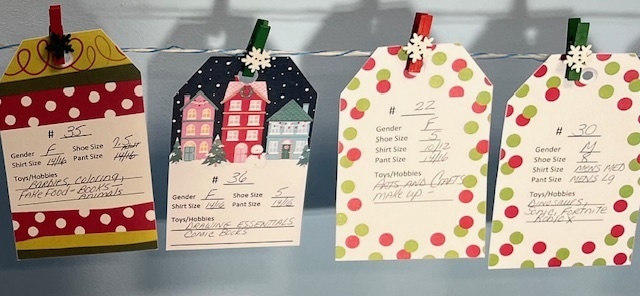 # 35
Gender F Shoe Size 2.5
Shirt Size 14/16 Pant Size 14/16
Toys/Hobbies
Barbies, coloring,
Fake Food - Books
Animals
# 36
Gender F Shoe Size 5
Shirt Size 14/16 Pant Size 14/16
Toys/Hobbies
Drawing Essentials
Comic Books
# 22
Gender F
Shoe Size 5
Shirt Size 10/12
Pant Size 14/16
Toys/Hobbies
Arts and Crafts
make up -
# 30
Gender M
Shoe Size 8
Shirt Size Mens Med
Pant Size Mens Lg
Toys/Hobbies
Dinosaurs,
Sonic, Fortnite
Roblox